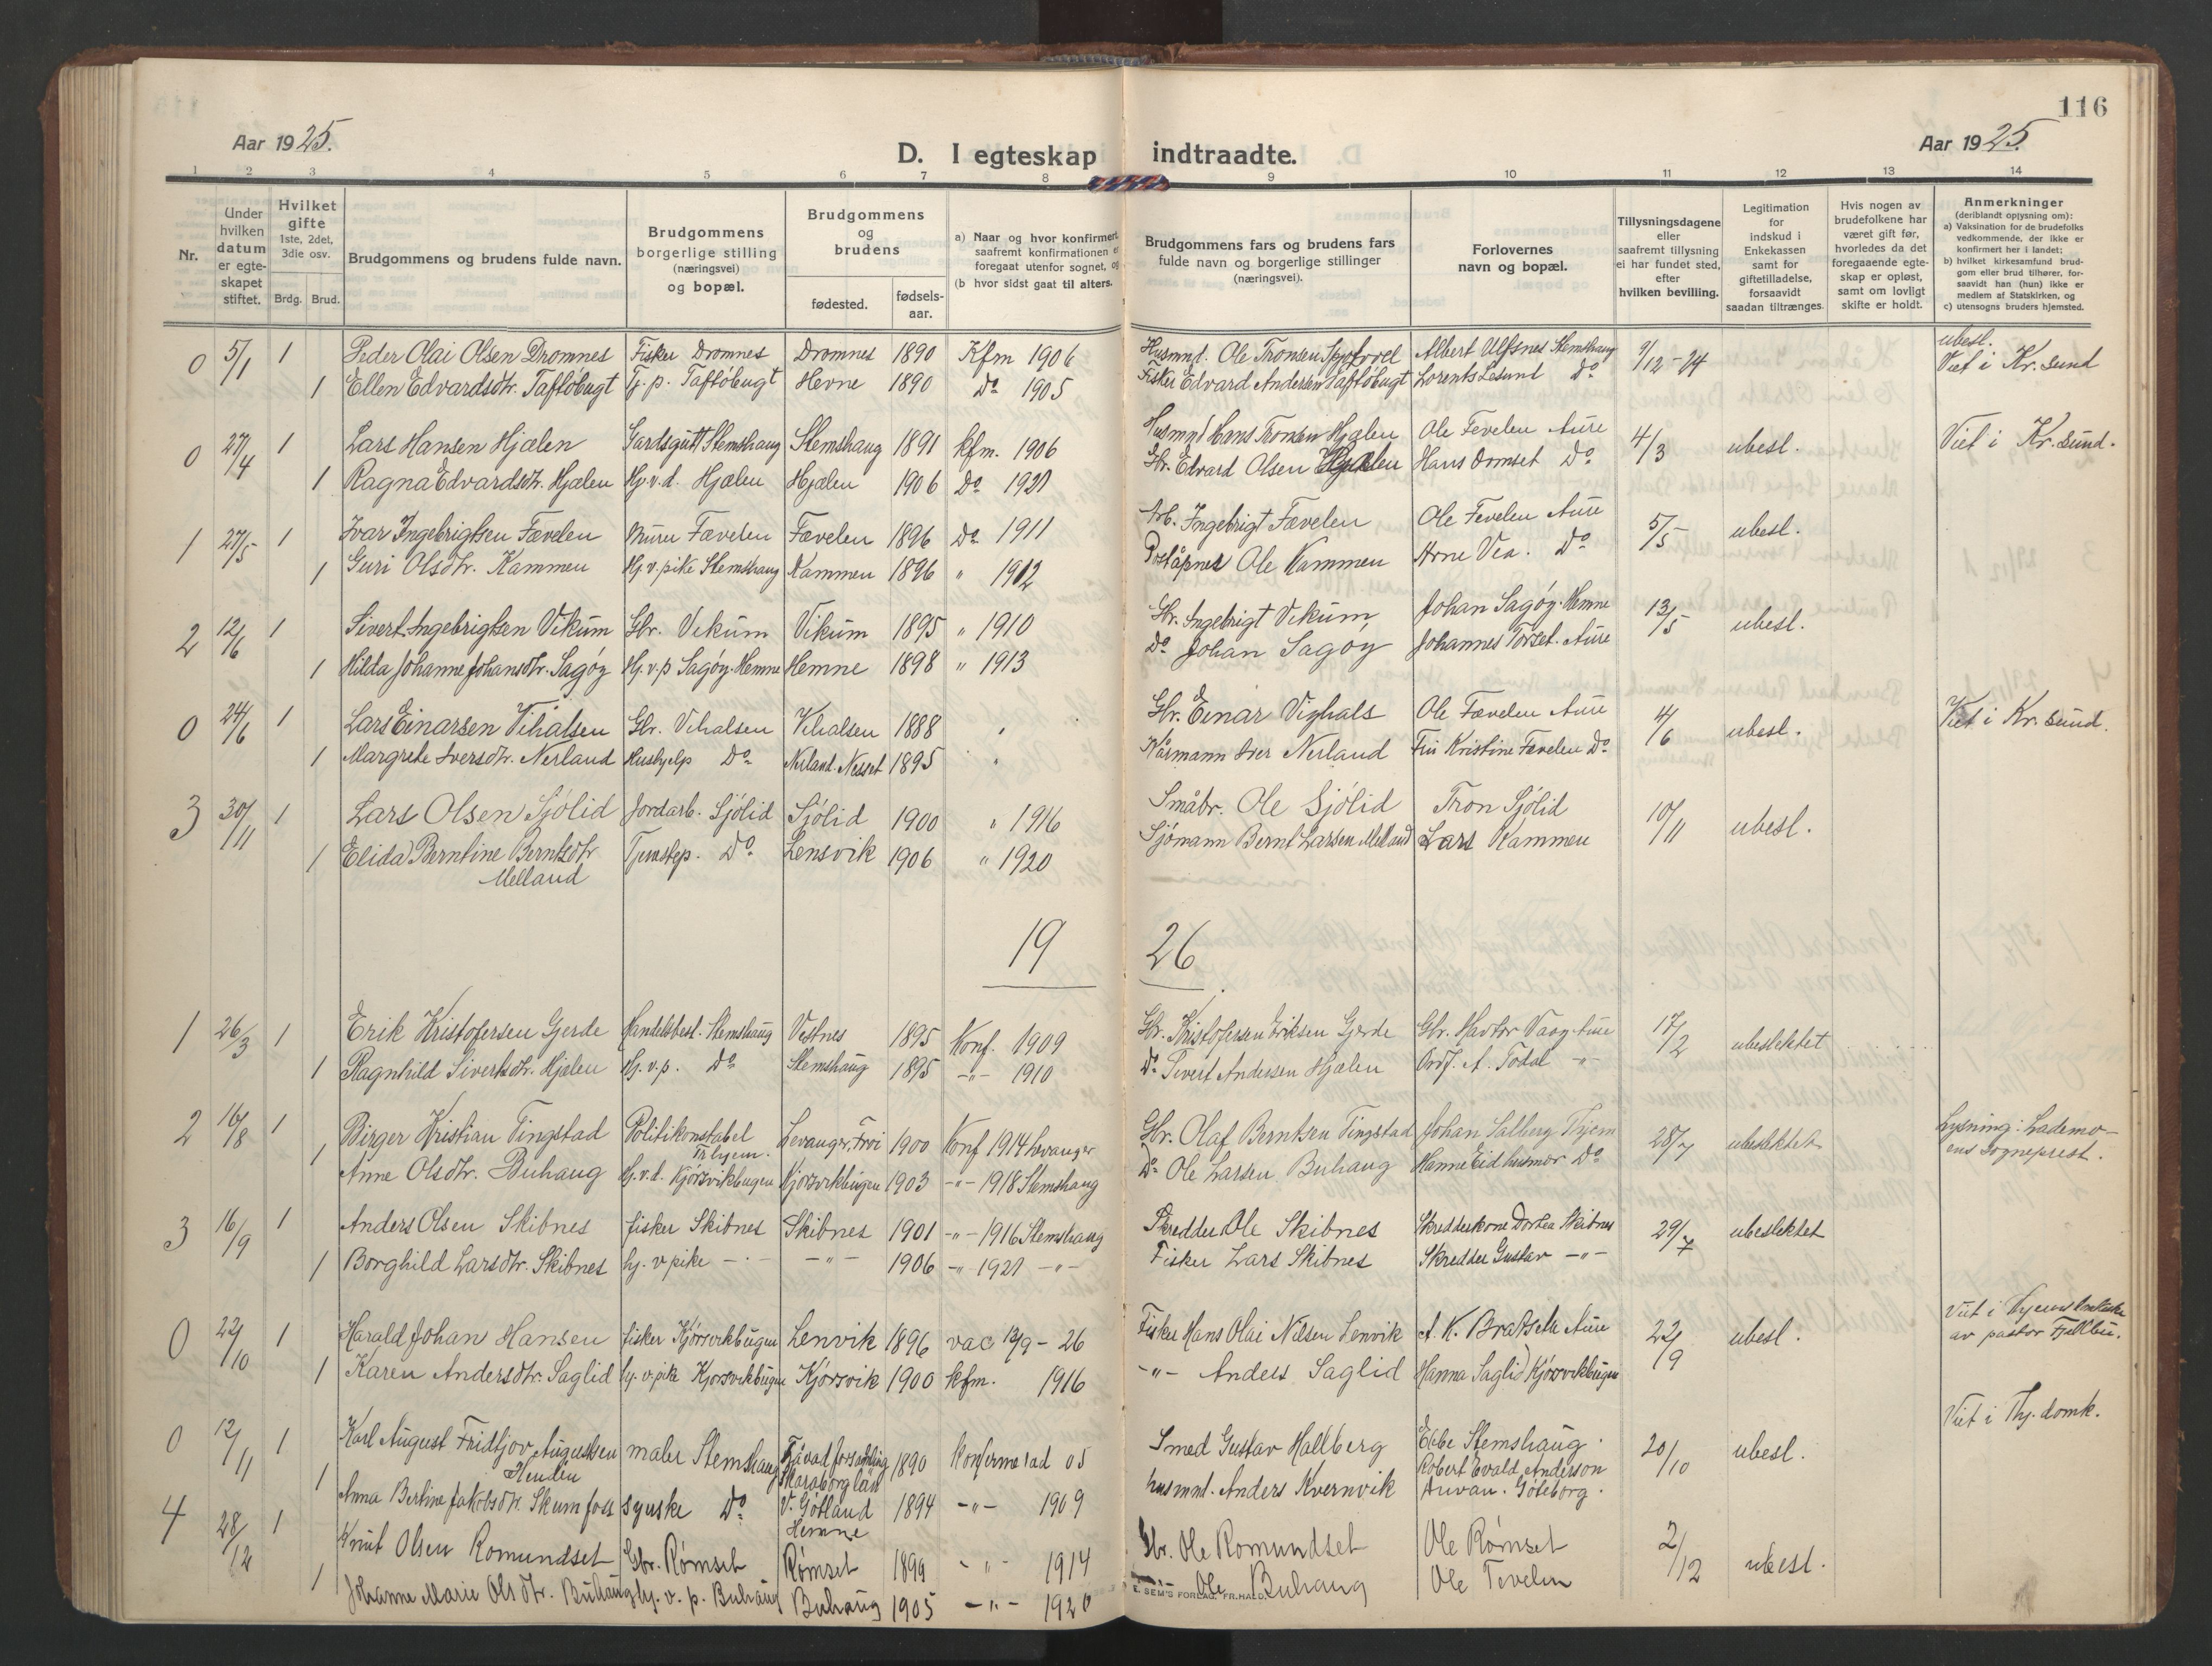 116
Aar 1925.
D. I egteskap indtraadte.
Aar 1925.
1 2 3 4 5 6 7 8 9 10 11 12 13 14
Nr.
Under hvilken datum er egteskapet stiftet.
Hvilket gifte 1ste, 2det, 3die osv.
Brdg. Brud.
Brudgommens og brudens fulde navn.
Brudgommens borgerlige stilling (næringsvei) og bopæl.
Brudgommens og brudens
fødested.
fødsels-aar.
a) Naar og hvor konfirmert saafremt konfirmationen er foregaat utenfor sognet, og
(b hvor sidst gaat til alters.
Brudgommens fars og brudens fars fulde navn og borgerlige stillinger (næringsvei).
Forlovernes navn og bopæl.
Tillysningsdagene eller saafremt tillysning ei har fundet sted, efter hvilken bevilling.
Legitimation for indskud i Enkekassen samt for giftetilladelse, forsaavidt saadan tiltrænges.
Hvis nogen av brudefolkene har været gift før, hvorledes da det foregaaende egteskap er opløst, samt om lovligt skifte er holdt.
Anmerkninger (deriblandt opjysning om):
a) Vaksination for de brudefolks vedkommende, der ikke er konfirmert her i landet;
b) hvilket kirkesamfund brudgom eller brud tilhører, forsaavidt han (hun) ikke er medlem af Statskirken, og
c) utensogns bruders hjemsted.
0 5/1 1 Peder Olai Olsen Dromnes Fisker Dromnes Dromnes 1890 Kfm 1906 Husmnd. Ole Tronsen Albert Ulfsnes Stemshaug 9/12-24 ubesl. Viet i Kr. sund
1 Ellen Edvardsdtr. Taftöbugt Tj. p. Taftöbugt Hevne 1890 Do 1905 Fisker Edvard Andersen Taftöbugt Lorents Lesund Do
0 27/4 1 Lars Hansen Hjælen Gardsgutt Stemshaug Stemshaug 1891 kfm. 1906 Husmnd Hans Tronsen Hjælen Ole Fevelen Aure 4/3 ubesl. Viet i Kr. sund.
1 Ragna Edvardsdtr. Hjælen Hj. v. d. Hjælen Hjælen 1906 Do 1921 Gbr. Edvard Olsen Hjælen Hans Domset Do
1 27/5 1 Ivar Ingebrigtsen Fævelen Murer Fævelen Fævelen 1896 Do 1911 Arb. Ingebrigt Fævelen Ole Fevelen Aure 5/5 ubesl.
1 Guri Olsdtr. Kammen Hj. v. pike Stemshaug Kammen 1896 " 1912 Poståpner Ole Kammen Arne Vea. Do
2 12/6 1 Sivert Ingebrigtsen Vikum Gbr. Vikum Vikum 1895 " 1910 Gbr. Ingebrigt Vikum Johan Sagøy. Hemne 13/5 ubesl.
1 Hilda Johanne Johansdtr. Sagøy Hj. v. p Sagøy. Hemne Hemne 1898 " 1913 Do Johan Sagøy Johannes Torset. Aure
0 24/6 1 Lars Einarsen Vihalsen Gbr. Vihalsen Vihalsen 1888 " Gbr. Einar Vihals Ole Fævelen Aure 4/6 ubesl. Viet i Kr. sund.
1 Margrete Iversdtr. Nerland Hushjelp Do Nerland. Nesset 1895 " Kårmann Iver Nerland Fru Kristine Fævelen Do
3 30/11 1 Lars Olsen Sjölid Jordarb. Sjölid Sjölid 1900 " 1916 Småbr. Ole Sjölid Tron Sjölid 10/11 ubesl.
1 Elida Berntine Berntsdtr Tjenstep. Do. Lensvik 1906 " 1920 Sjömann Bernt Larsen Melland Lars Kammen
Melland
19 26
1 26/3 1 Erik Kristofersen Gjerde Handelsbest. Stemshaug Vestnes 1895 Konf. 1909 Gbr. Kristofersen Eriksen Gjerde Gbr. Havtor Vaag. Aure 17/2 ubeslektet
1 Ragnhild Sivertsdtr. Hjælen Hj. v. p. Do Stemshaug 1895 -"- 1910 Do Sivert Andersen Hjælen Ordf. A. Todal -"-
2 16/8 1 Birger Kristian Tingstad Politikonstabel Trhjem. Levanger, 1900 Konf 1914 Levanger Gbr. Olaf Berntsen Tingstad Johan Salberg Thjem 28/7 ubeslektet Lysning: Lademoens sogneprest.
1 Anne Olsdtr. Buhaug Hj. v. d. Kjörsvikbugen Kjorsvikbugen 1903 -"- 1918 Stemshaug Do Ole Larsen Buhaug Hanne Eid husmor Do
3 16/9 1 Anders Olsen Skibnes fisker Skibnes Skibnes 1901 -"- 1916 Stemshaug Skredder Ole Skibnes Skredderkone Dortea Skibnes 29/7 ubeslektet
1 Borghild Larsdtr. Skibnes hj. v pike -"- -"- 1906 -"- 1921 -"- Fisker Lars Skibnes Skredder Gustav -"-
0 22/10 1 Harald Johan Hansen fisker Kjörsvikbugen Lenvik 1896 vac 13/9-26 Fisker Hans Olai Nilsen Lenvik A. K. Bratseth Aure 22/9 ubesl. Viet i av pastor
1 Karen Andersdtr. Saglid hj. v. pike Kjorsvikbugen Kjörsvik 1900 kfm. 1916 -"- Anders Saglid Hanna Saglid Kjörsvikbugen
0 12/11 1 Karl August Fridtjov Augustsen maler Stemshaug forsamling 1890 Konfermerad 05 Smed Gustav Hallberg Ebbe Stemshaug. 20/10 ubesl. Viet i Thj. domk.
Skaraborg län Robert Evald Anderson
1 Anna Bertine Jakobsdtr. Skumfoss syerske Do V. Götland Hemne 1894 -"- 1909 husmnd. Anders Kvernvik Göteborg.
4 28/12 1 Knut Olsen Romundset Gbr. Rømset Rømset 1899 -"- 1914 Gbr. Ole Romundset Ole Rømset 2/12 ubesl.
1 Johanne Marie Olsdtr. Buhaug hj. v. p. Buhaug Buhaug 1905 -"- 1920 Ole Buhaug Ole Fevelen
E. SEM'S FORLAG, FR.HALD.